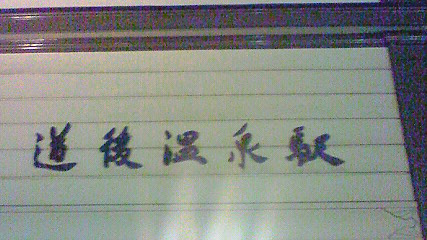 道後温泉駅